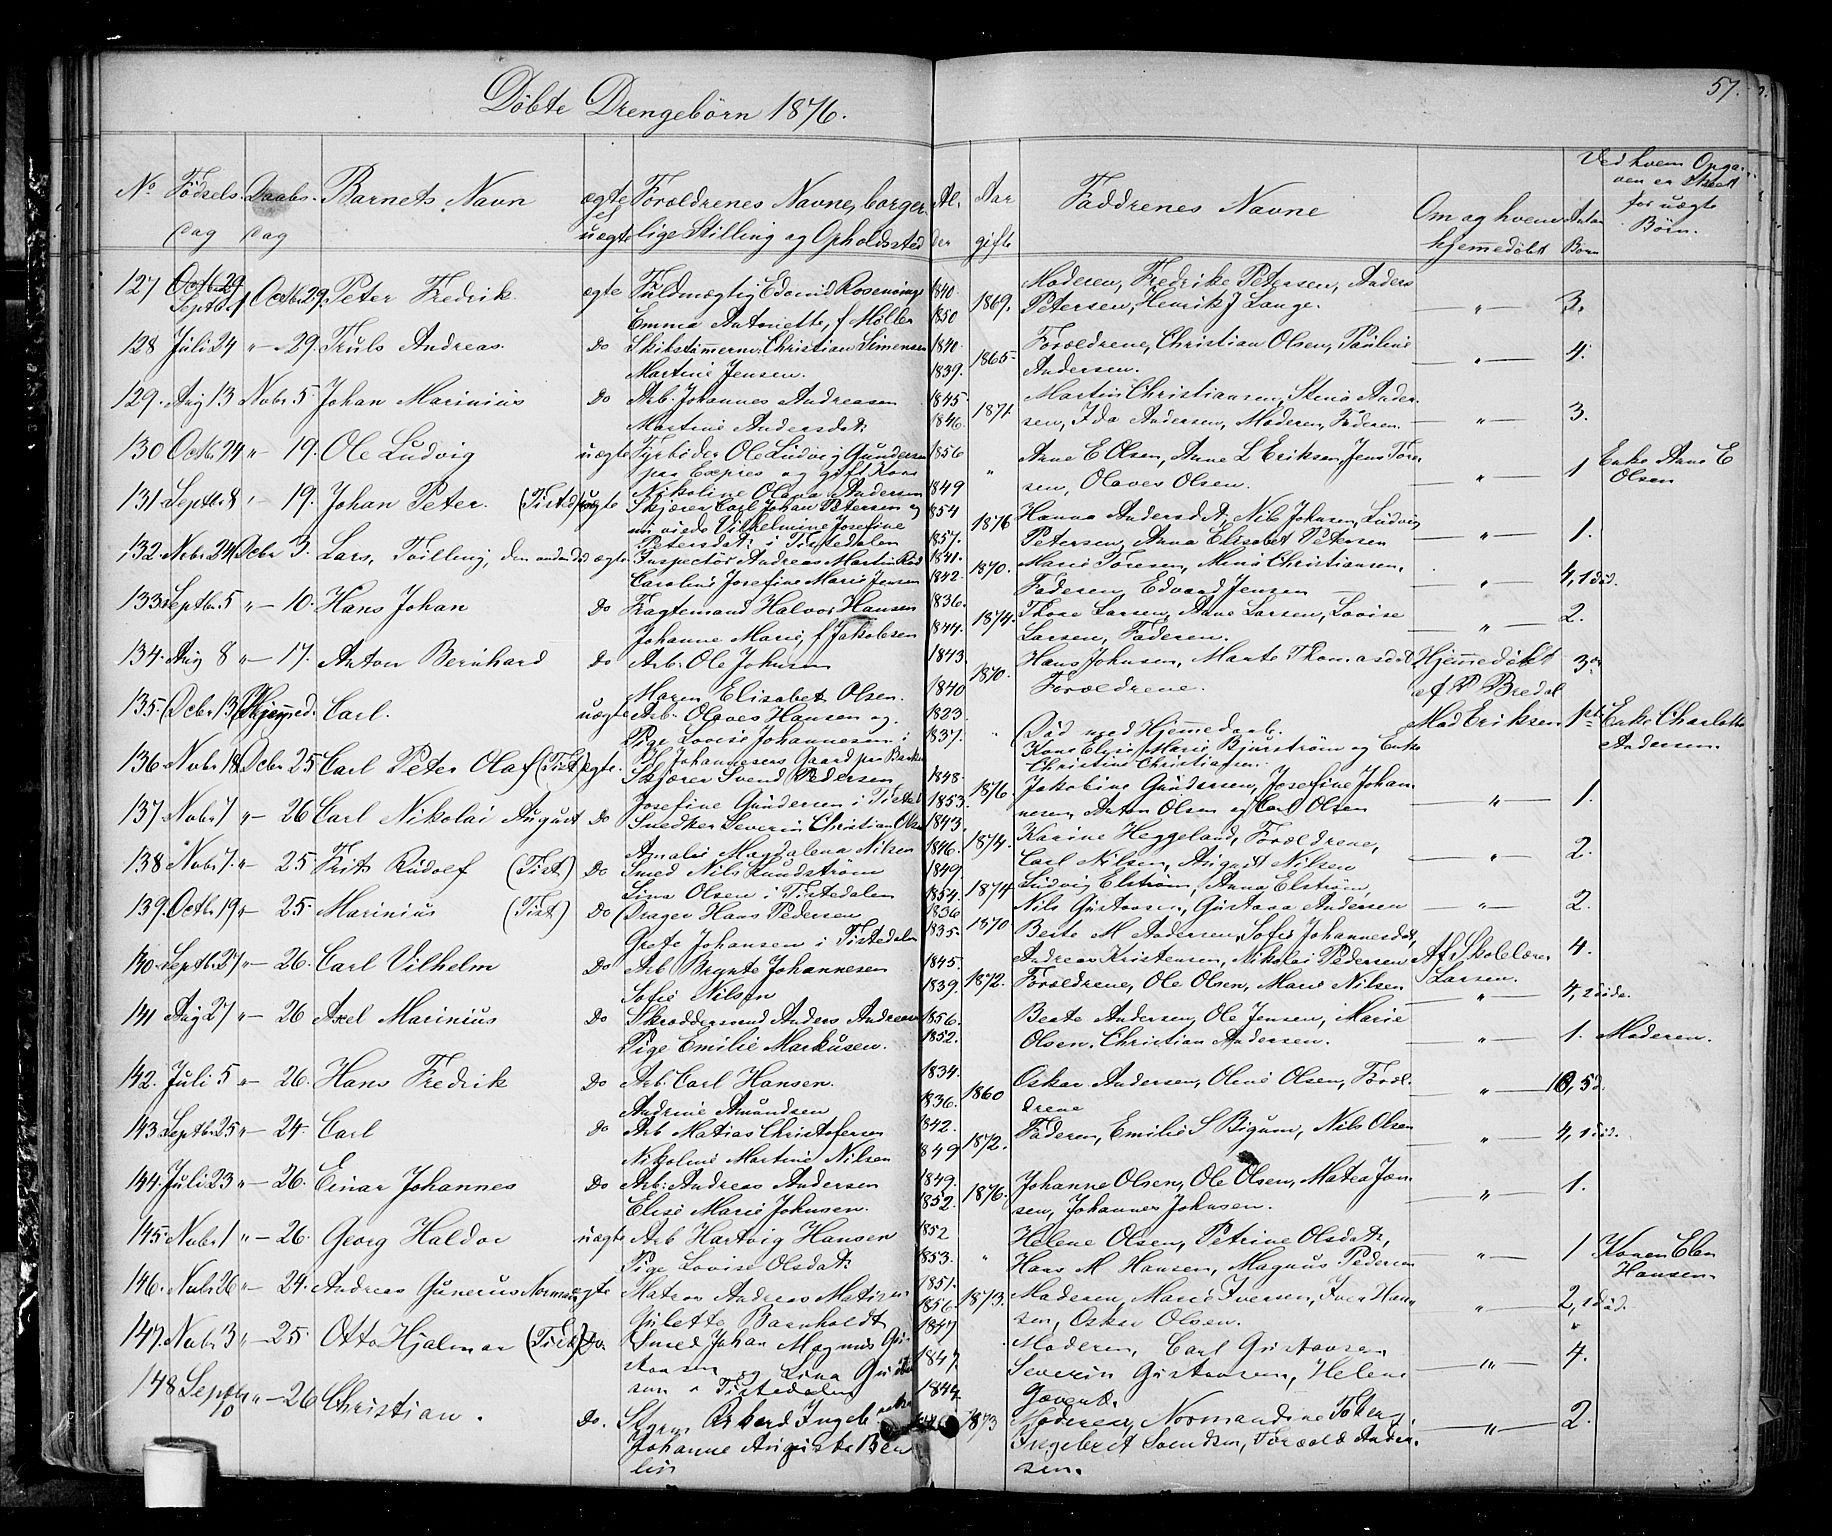 57.
Döbte Drengebörn 1876.
No Födsels dag Daabs dag Barnets Navn ægte el uægte Forældrenes Navne, borgerlige Stilling og Opholdssted Alder Aar gifte Faddrenes Navne Om og hvem hjemmedöbt Antal Börn Ved hvem Opgaven er skeet for uægte Börn.
127 Septbr Octbr 29. Peter Fredrik ægte Fuldmægtig Edvind Rosenvinge 1840. 1869. Moderen, Fredrike Petersen, Anders
Emma Antoniette, f Møller 1850 Petersen, Henrik J Lange. — „ — 3.
128 Juli 24 „ — 29. Truls Andreas. Do Skibstömerm. Christian Simensen 1840. 1865. Forældrene, Christian Olsen, Pauline
Martine Jensen. 1839. Andersen. — „ — 4.
129. Aug 13 Nobr 5. Johan Marinius Do Arb. Johannes Andreasen 1845. 1871. Martin Christiansen, Stina Ander-
Martine Andersdat. 1846. sen, Ida Andersen, Moderen, Faderen. — „ — 3.
130 Octb. 24 „ — 19. Ole Ludvig uægte Fyrböder Ole Ludvig Gundersen 1856 „ Anne E Olsen, Anne L Eriksen, Jens Tore-
paa Expres og gift Kone
Nikoline Olava Andersen 1849 sen, Olaves Olsen. — „ — 1 Enke Anne E Olsen
131. Septbr 8 „ — 19. Johan Peter. (Tistedal) uægte Skjærer Carl Johan Petersen og 1854 1876 Hanna Andersdat, Nils Johnsen, Ludvig
Vilhelmine Josefine
Petersdat. i Tistedalen 1857. Petersen, Anna Elisabet Petersen — „ — 1.
132. Nobr 24 Dcbr 3. Lars, Tvilling, den anden ægte Inspectör Andreas Martin 1841. 1870. Marie Toresen, Mina Christiansen,
Caroline Josefine Marie Jensen 1842. Faderen, Edvard Jensen — „ — 4, 1 död.
133. Septbr 5 „ — 10. Hans Johan Do Fragtemand Halvor Hansen 1836. 1874. Thore Larsen, Anne Larsen, Lovise
Johanne Marie, f Jakobsen 1844. Larsen, Faderen. — „ — 2.
134. Aug 8 „ — 17. Anton Bernhard Do Arb. Ole Johnsen 1843 1870. Hans Johnsen, Marte Thomasdat Hjemmedöbt
Maren Elisabet Olsen. 1840 Forældrene. af P Bredal 3
135. Dcbr 13 Hjemed. Carl. uægte Arb. Olaves Hansen og 1823 „ Död med Hjemmedaab. Mad Eriksen 1 Enke Charlotte Andersen.
Pige Lovise Johannesen i 1837. Kone Elise Marie Bjurström og Enke
Johannesens Gaard paa Banken Christine Christiansen.
136 Nobr 18 Dcbr 25 Carl Peter Olaf (Tist.) ægte. Skjærer Svend Pedersen 1848. 1876. Jakobine Gundersen, Josefine Johan-
Josefine Gundersen i Tisted. 1853. nesen, Anton Olsen og Carl Olsen — „ — 1.
137. Nobr 7 „ — 26 Carl Nikolai August Do Snedker Severin Christian Olsen 1843. 1874. Karine Heggeland, Forældrene,
Amalie Magdalena Nilsen 1846. Carl Nilsen, August Nilsen — „ — 2.
138. Nobr 7. „ — 25 Frits Rudolf (Tist) Do Smed Nils Lundström 1849. 1874 Ludvig Elström, Anna Elström,
Lina Olsen i Tistedalen 1854. Nils Gustavsen, Gustava Andersen — „ — 2.
139. Octb. 19 „ — 25. Marinius (Tist) Do Drager Hans Pedersen 1836 1870 Berte M Andersen, Sofie Johannesdat,
Grete Johansen i Tistedalen 1835. Andreas Kristensen, Nikolai Pedersen Af Skolelærer Larsen. 4.
140. Septbr 27 „ — 26. Carl Vilhelm Do Arb Brynte Johannesen 1845. 1872. Forældrene, Ole Olsen, Marie Nilsen
Sofie Nilsen 1839. — „ — 4, 2 döde.
141 Aug 27 „ — 26 Axel Marinius Do Skræddersvend Anders Andersen 1856. Berte Andersen, Ole Jensen, Marie
Pige Emilie Markusen. 1852. Olsen. Christian Andersen. — „ — 1. Moderen.
142. Juli 5 „ — 26. Hans Fredrik Do Arb. Carl Hansen. 1834. 1860 Oskar Andersen, Oline Olsen, Foræl-
Andrine Amundsen 1836. drene — „ — 10, 5 d.
143. Septbr 25 „ — 24. Carl Do Arb Matias Christofersen 1842. 1872. Faderen, Emilie S Bigum, Nils Olsen
Nikoline Martine Nilsen 1849 — „ — 4, 1 död.
144. Juli 23 „ — 26. Einar Johannes Do Arb. Andreas Andersen 1849. 1876. Johanne Olsen, Ole Olsen, Matea Jen-
Elise Marie Johnsen. 1852. sen, Johannes Johnsen. — „ — 1.
145. Nobr 1 „ — 26. Georg Haldor uægte Arb Hartvig Hansen 1852 „ Helene Olsen, Petrine Olsdat.,
Pige Lovise Olsdat. 1853. Hans M Hansen, Magnus Pedersen — „ — 1 Konen Elen Hansen.
146. Nobr 26 „ — 24. Andreas Gunerus Norman ægte Matros Andreas Matisen 1851. 1873. Moderen, Marie Iversen, Iver Han-
Gulette Barnholdt 1856. sen, Oskar Olsen. — „ — 2, 1 död.
147. Nobr 3 „ — 25. Otto Hjalmar (Tist.) Do. Smed Johan Magnus Gu- 1847 Moderen, Carl Gustavsen,
stavsen og Lina 1847. Severin Gustavsen, Helene — „ — 4.
sen i Tistedalen 1844
148 Septbr 10 „ — 26 Christian. Do. Styrm. 1873 Moderen, Normandine
Johanne Augusta Ben- Ingebret Svendsen, Ander-
sen. — „ — 2.